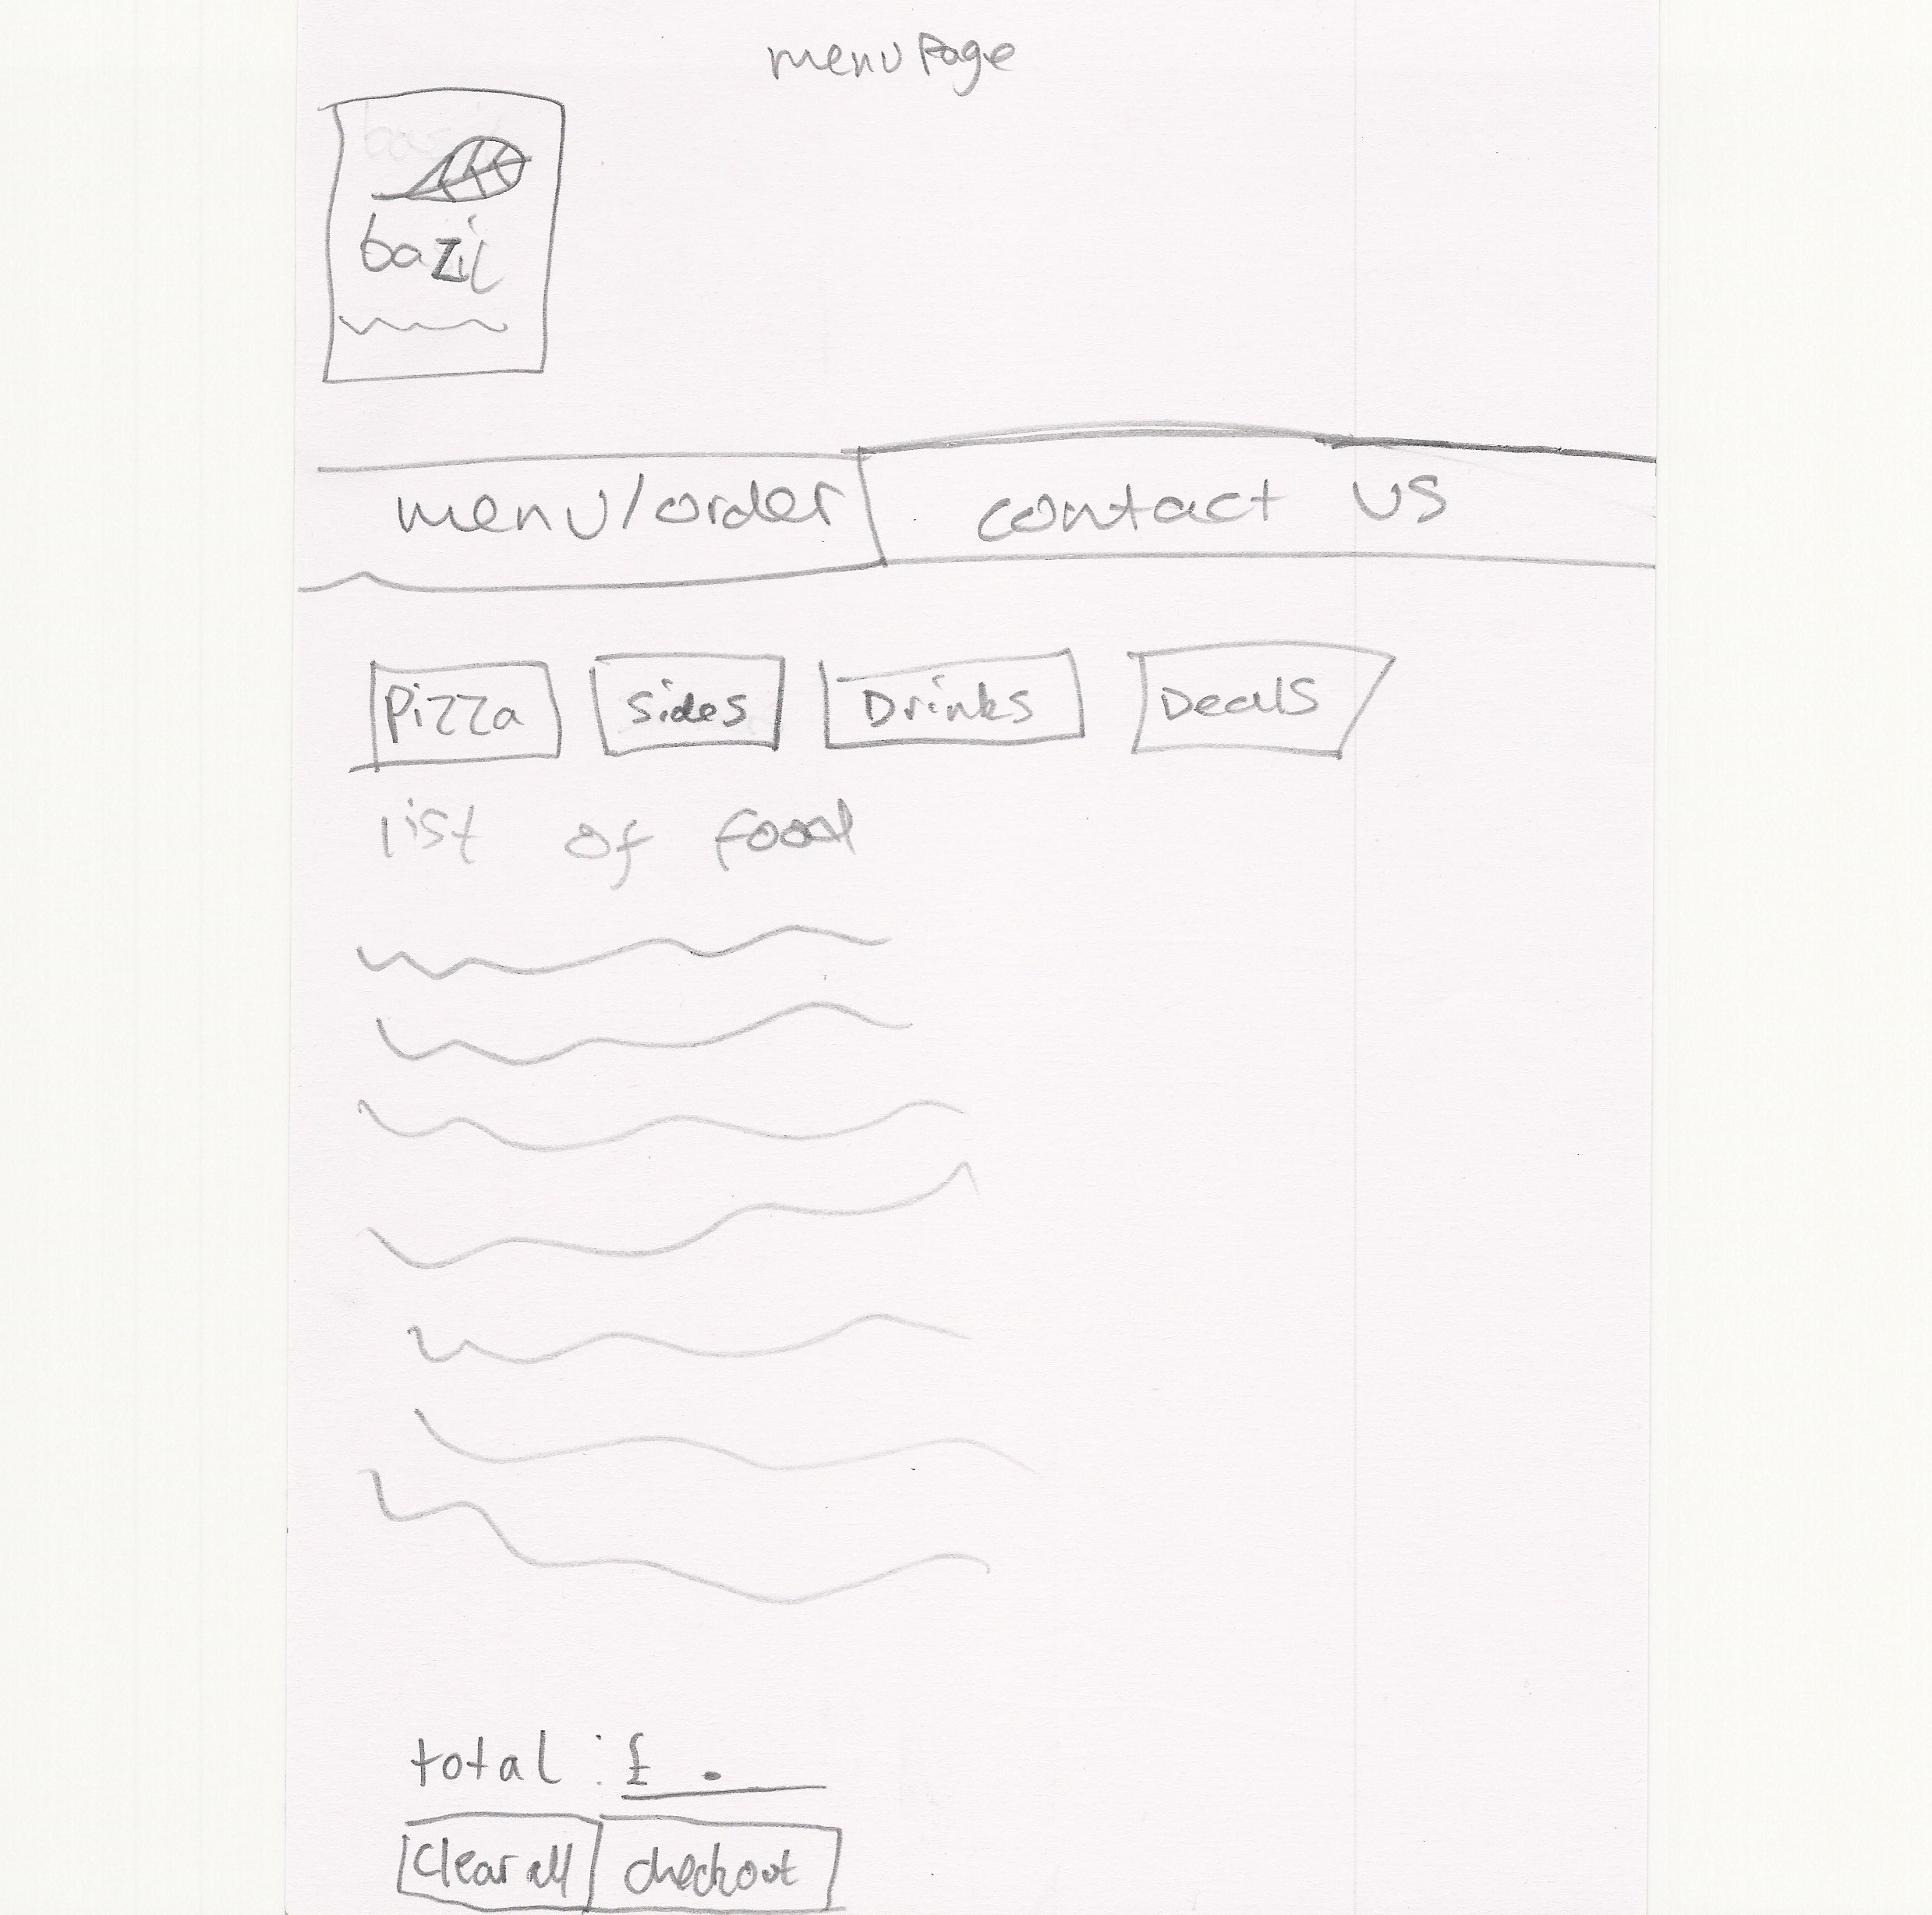 menu Page
bazil
menu/order contact us
Pizza sides Drinks Deals
list of food
total : £ .
Clear all checkout